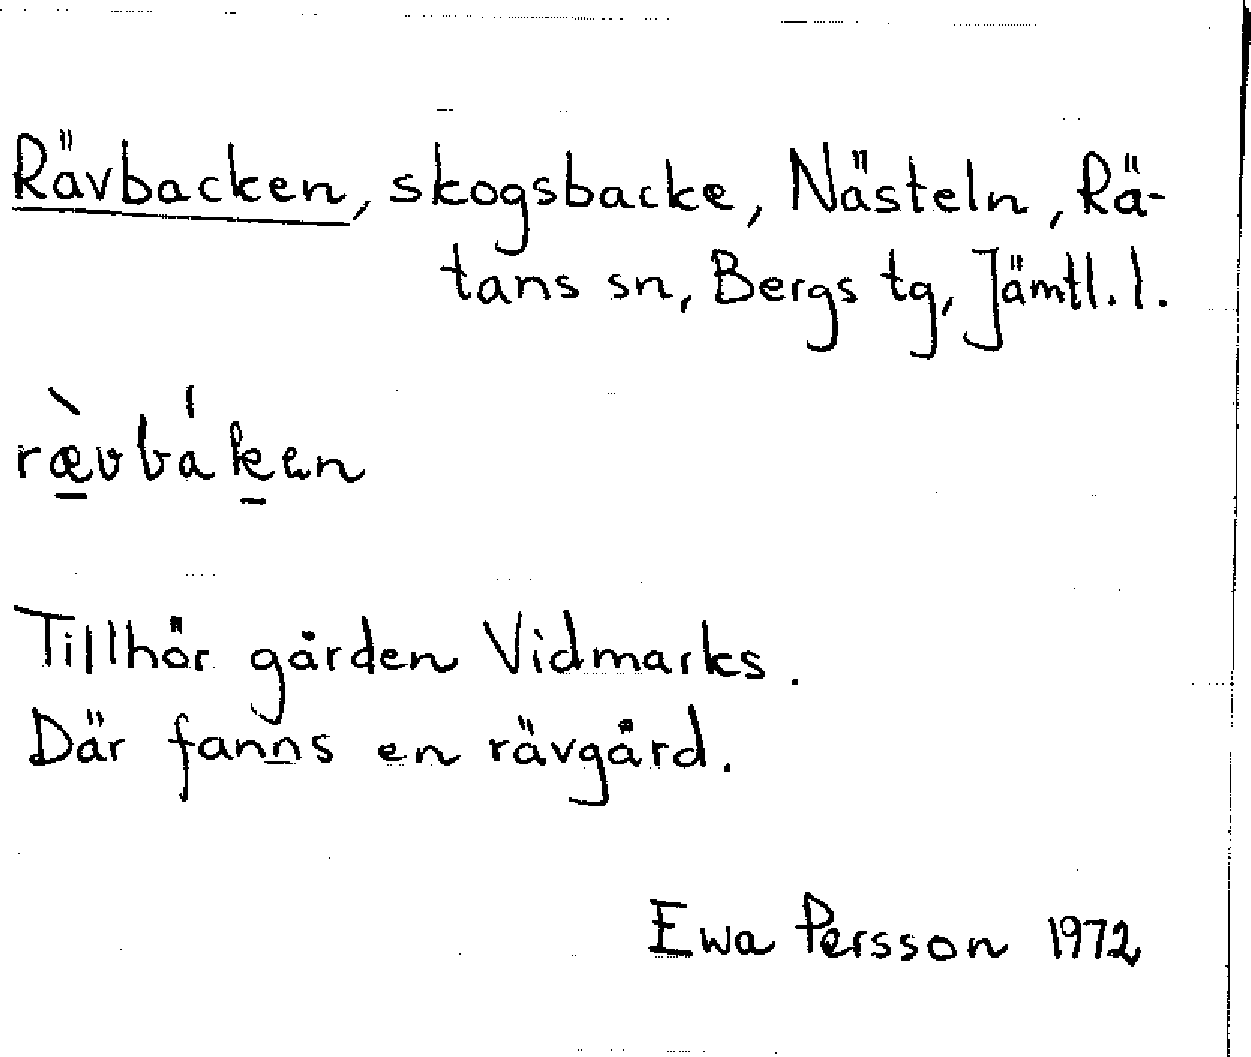 Rävbacken, skogsbacke, Nästeln, Rä-
tans sn, Bergs tg, Jämtl. l.
ræ̱̀vbáḵen
Tillhör gården Vidmarks.
Där fanns en rävgård.
Ewa Persson 1972